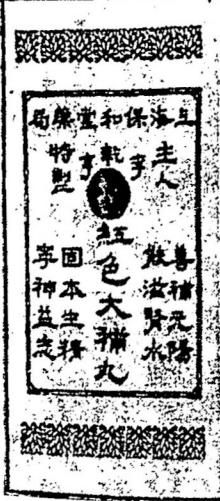 上海保和堂藥局
主人
乾
亨
特製
紅色大補丸
善補元陽
能滋腎水
固本生精
寧神益志